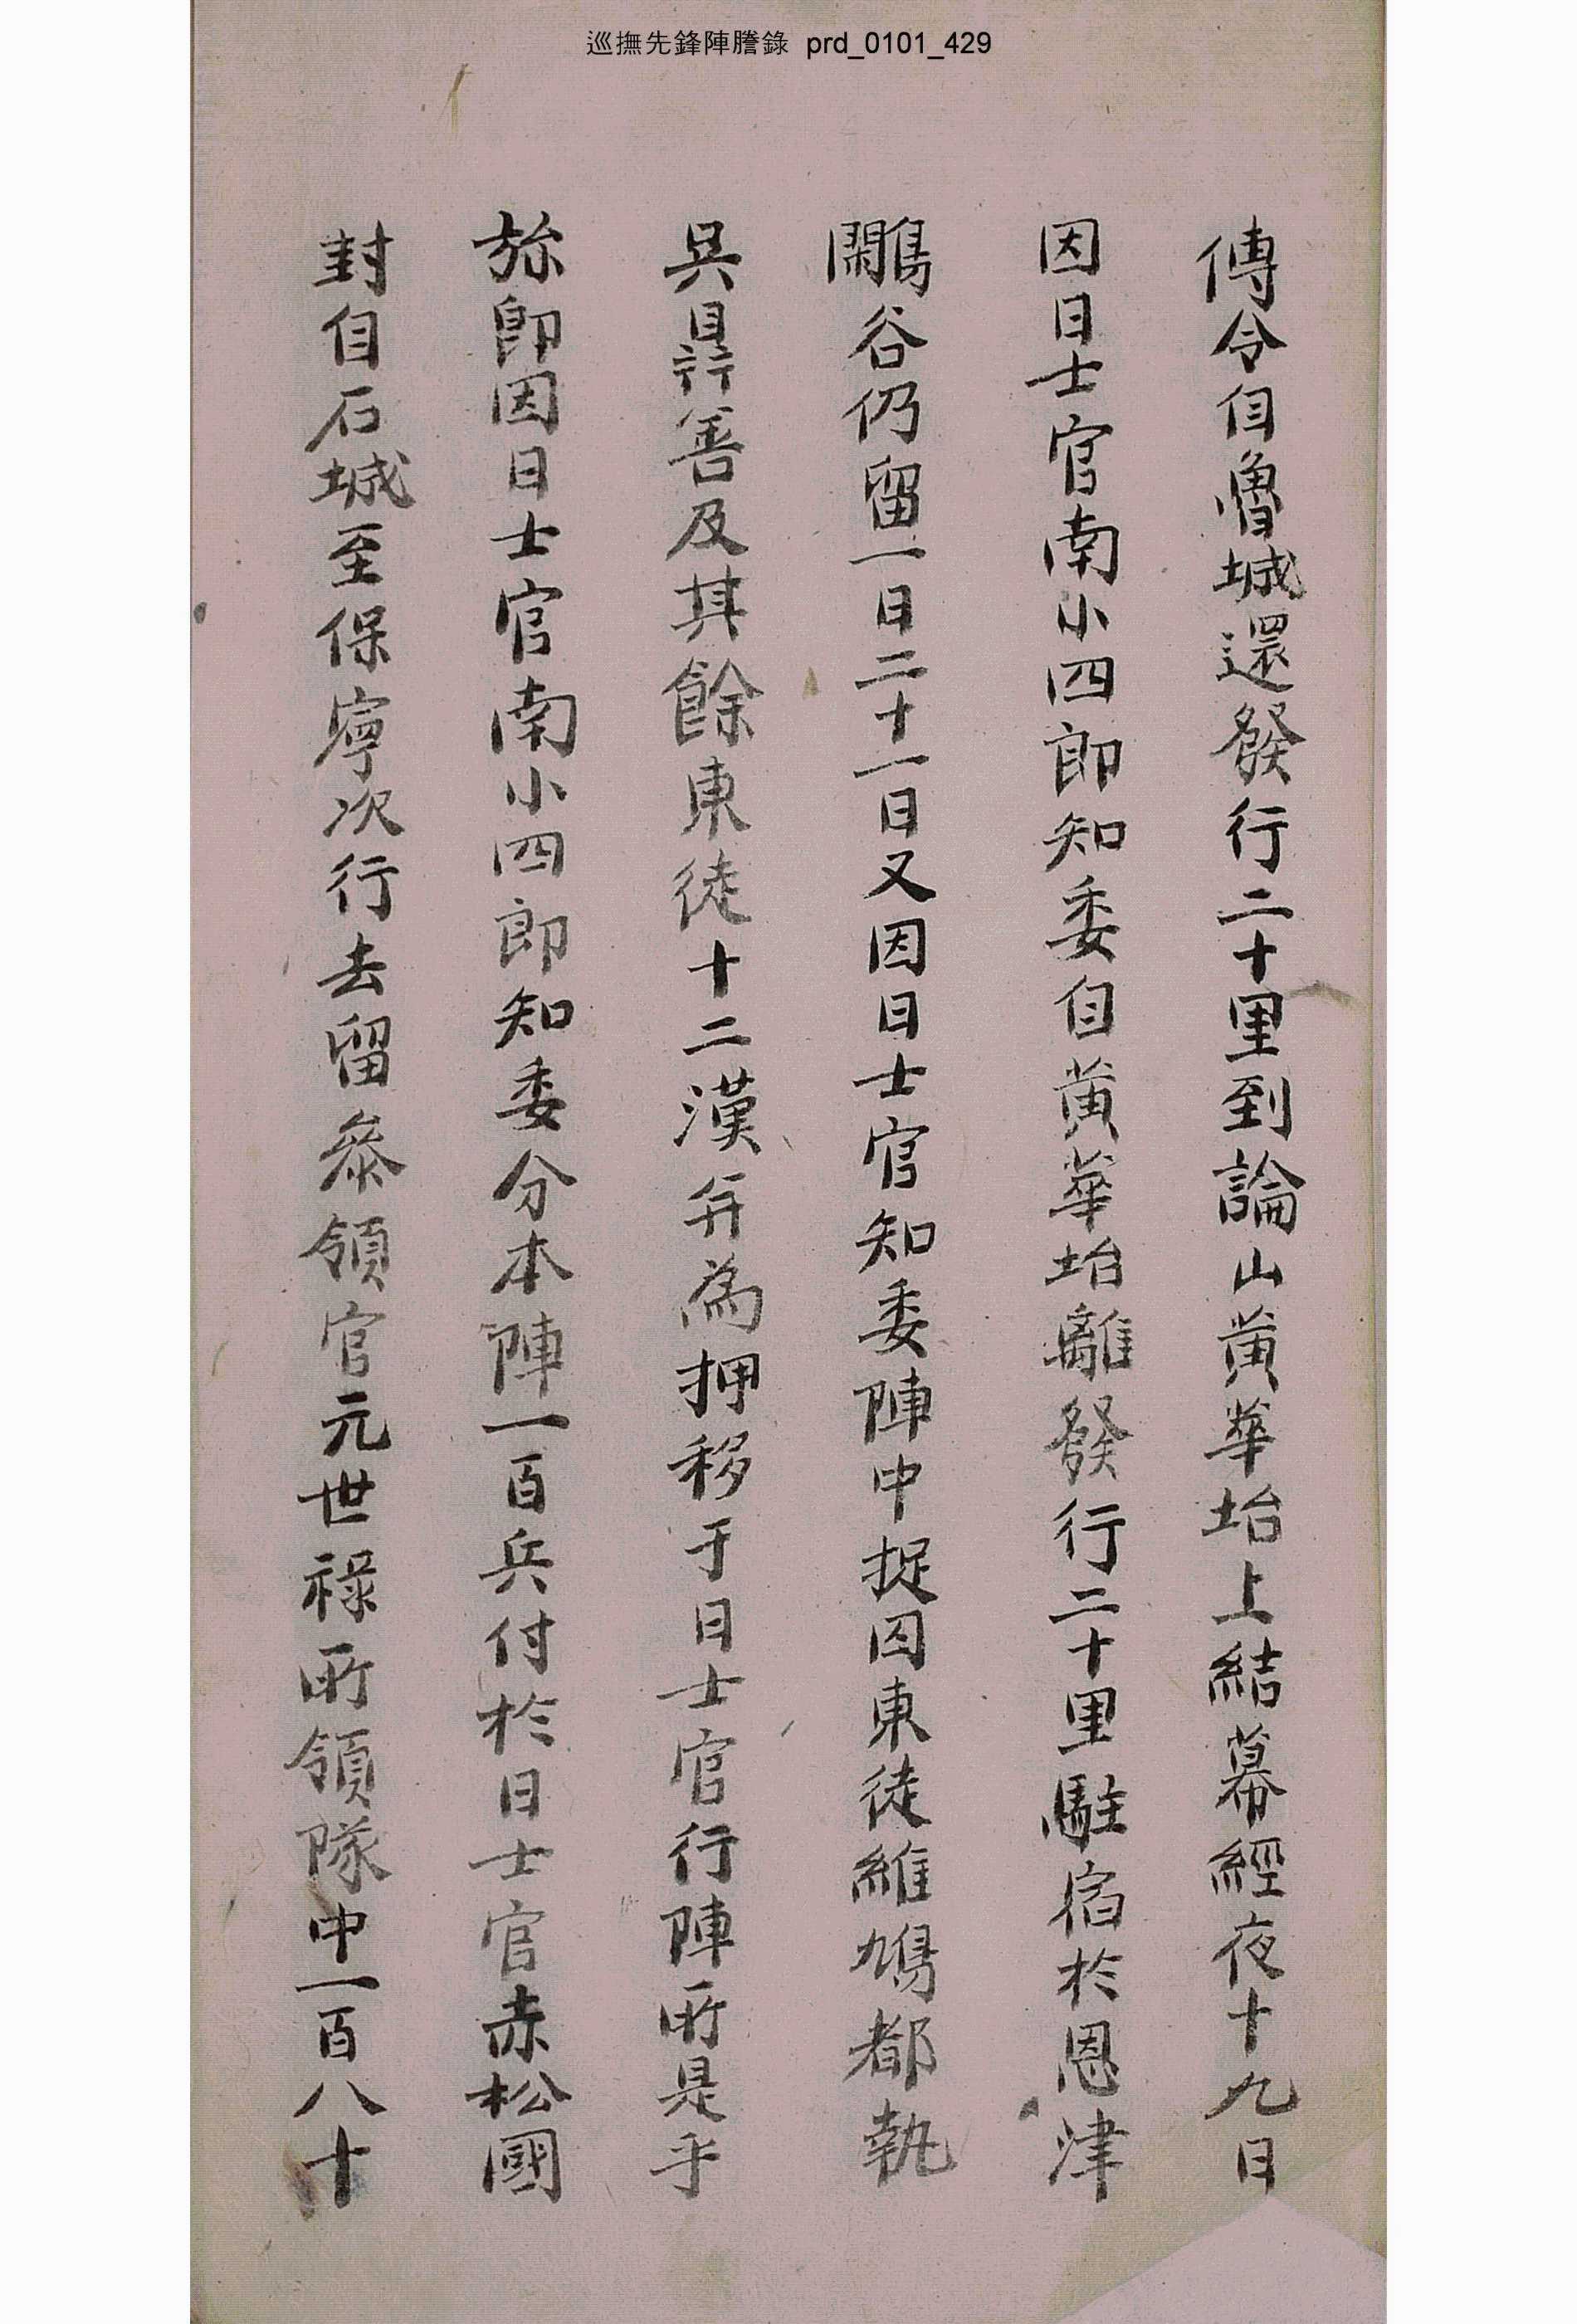 巡撫先鋒陣謄錄 prd_0101_429
傳令自魯城還發行二十里到論山黃華坮上結幕經夜十九日
因日士官南小四郎知委自黃華坮離發行二十里駐宿於恩津
鷴谷仍留一日二十一日又因日士官知委陣中捉囚東徒維鳩都執
吳善及其餘東徒十二漢幷爲押移于日士官行陣所是乎
旀卽因日士官南小四郎知委分本陣一百兵付於日士官赤松國
封自石城至保寧次行去留叅領官元世祿所領隊中一百八十